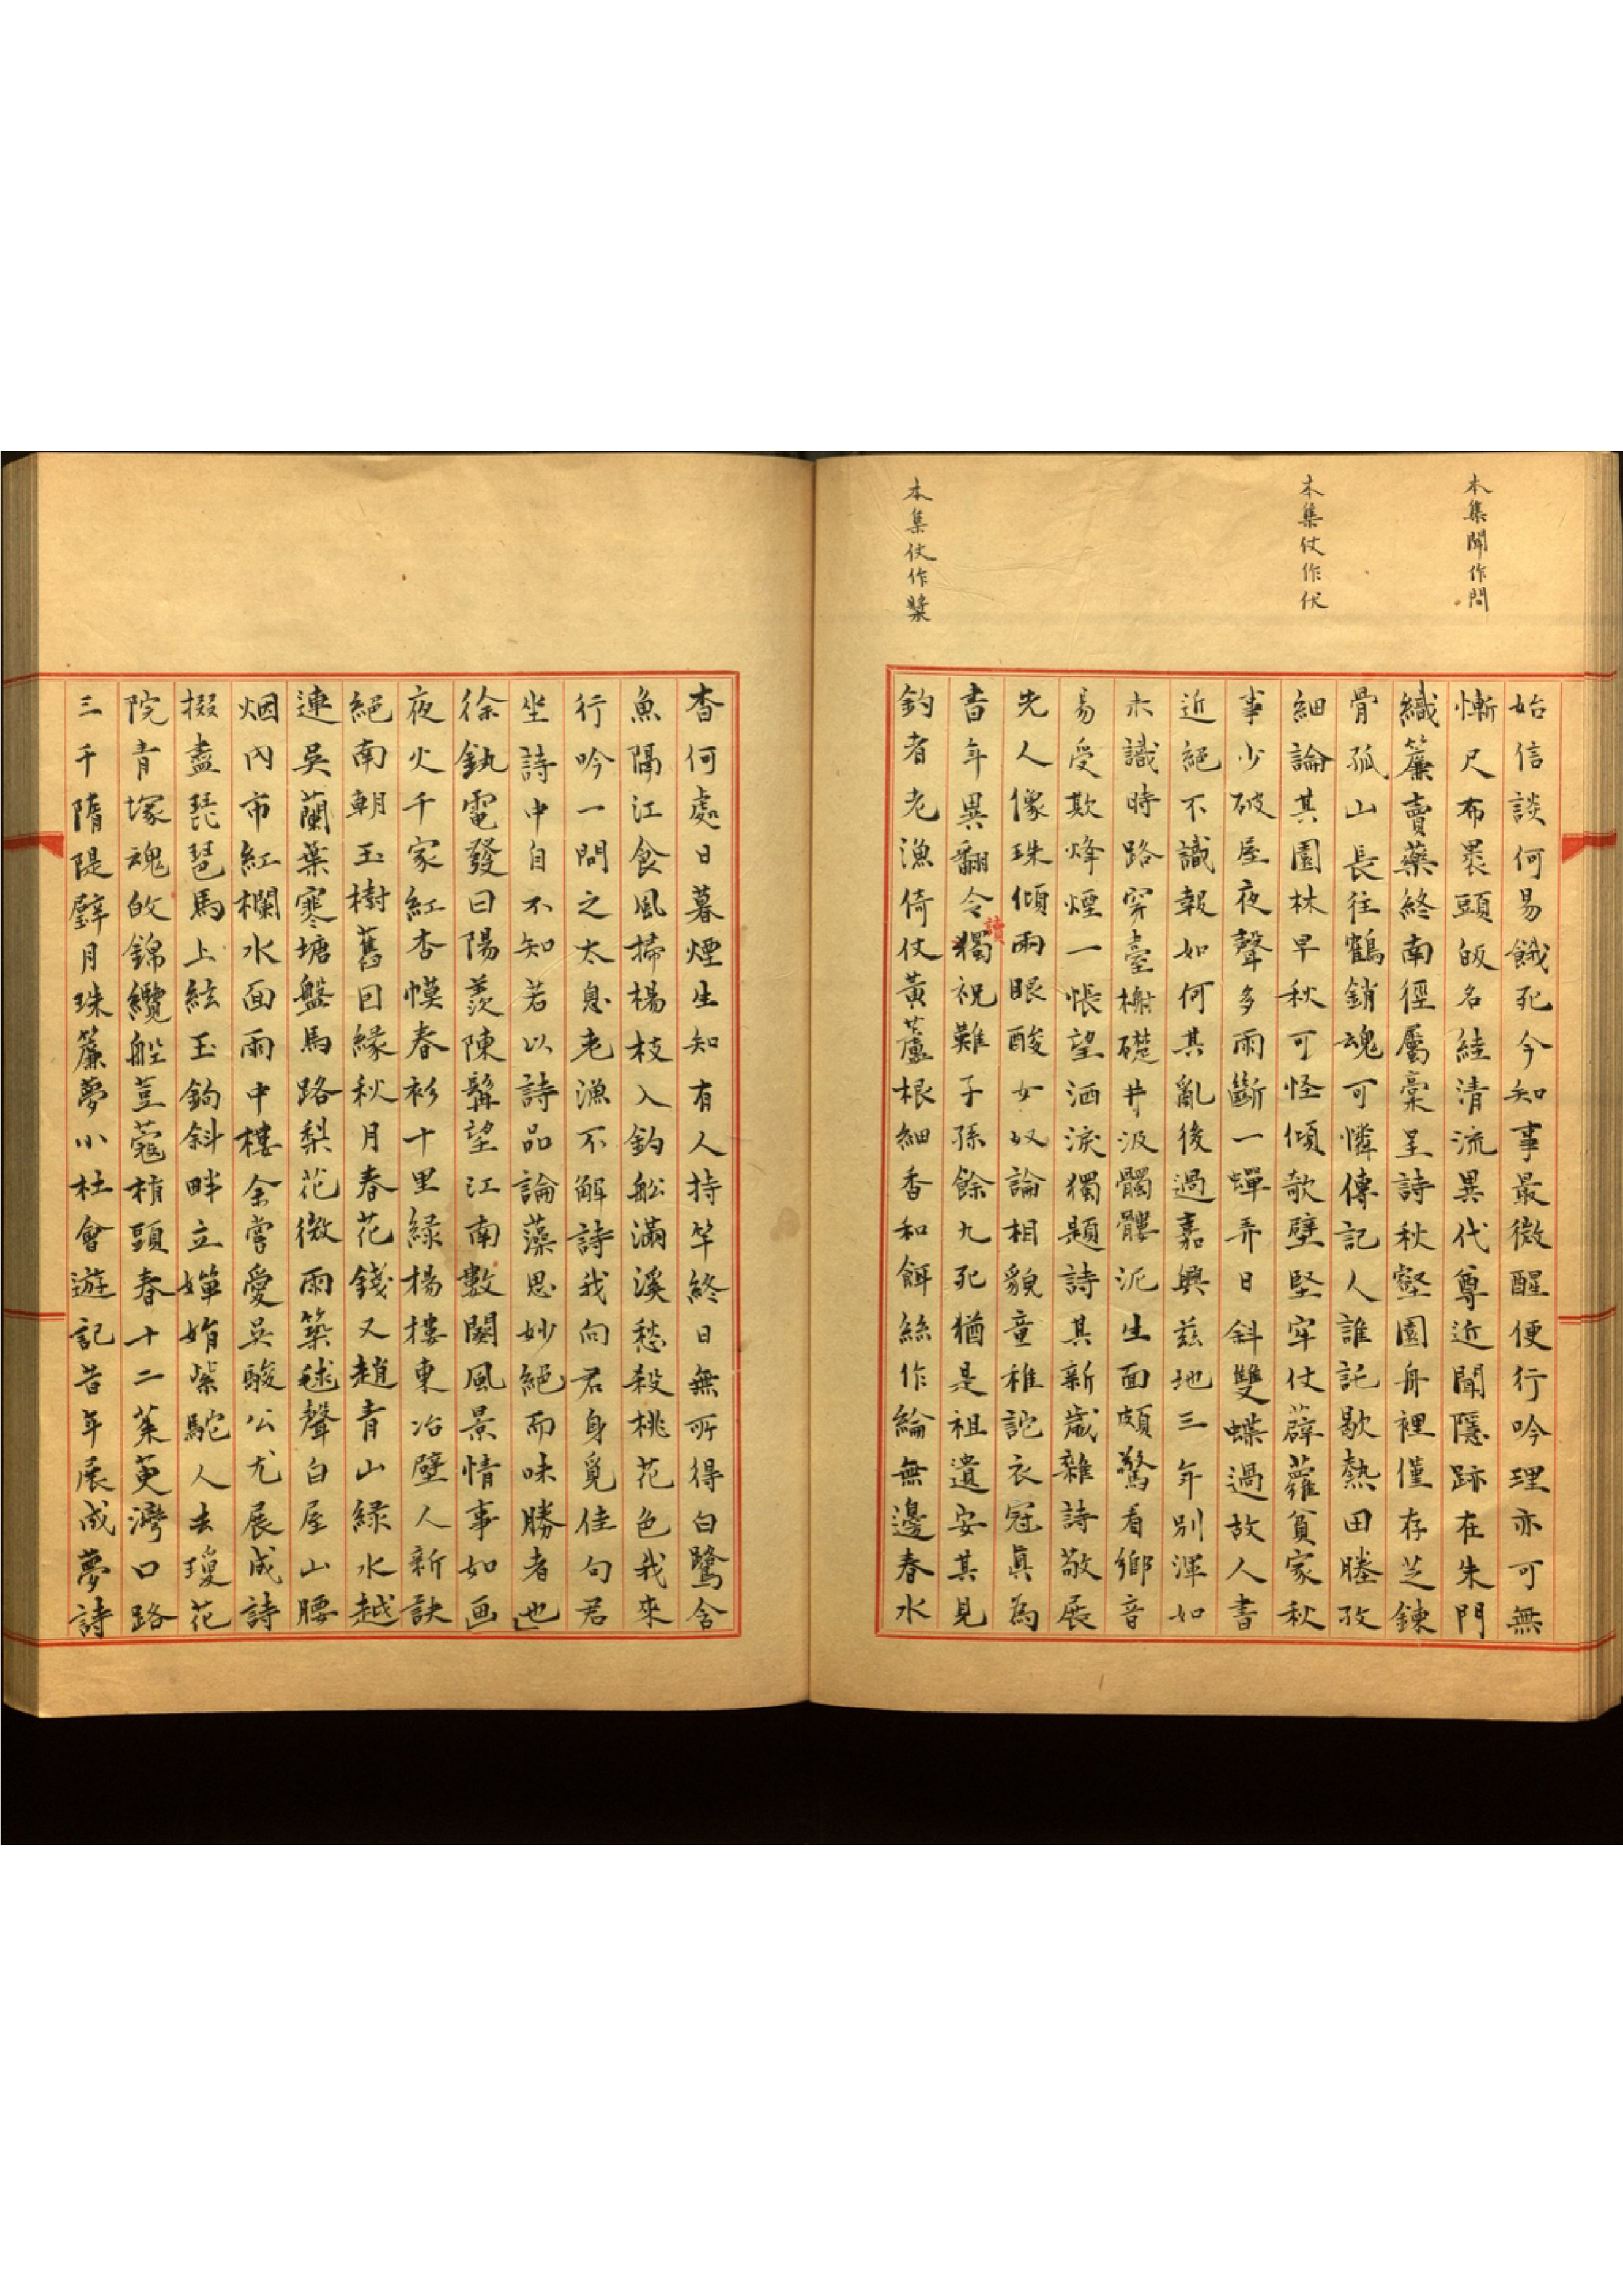 本集聞作問
本集仗作伏
本集仗作槳
始信談何易餓死今知事最微醒便行吟理亦可無
慚尺布裹頭皈名絓清流異代尊近聞隱跡在朱門
織簾賣藥終南徑屬稾呈詩秋壑園舟裡僅存芝鍊
骨孤山長往鶴銷魂可憐傳記人誰託歇熱田塍孜
細論其園林早秋可怪傾欹壁堅牢仗薜蘿貧家秋
事少破屋夜聲多雨斷一蟬弄日斜雙蝶過故人書
近絕不識報如何其亂後過嘉興茲地三年別渾如
未識時路穿臺榭礎井汲髑髏泥生面頗驚看鄉音
易受欺烽煙一悵望洒淚獨題詩其新歲雜詩敬展
先人像珠傾兩眼酸女奴論相貌童稚詫衣冠眞為
書年異翻令獨祝難子孫餘九死猶是祖遺安其見
讀
釣者老漁倚仗黃蘆根細香和餌絲作綸無邊春水
杳何處日暮煙生知有人持竿終日無所得白鷺含
魚隔江食風掃楊枝入釣船滿溪愁殺桃花色我來
行吟一問之太息老漁不解詩我向君身覓佳句君
坐詩中自不知若以詩品論藻思妙絕而味勝者也
徐釚電發曰陽羨陳髯望江南數闋風景情事如画
夜火千家紅杏幙春衫十里緑楊樓東冶壁人新訣
絕南朝玉樹舊因緣秋月春花錢又趙青山緑水越
連吳蘭葉寒塘盤馬路梨花微雨築毬聲白屋山腰
烟內市紅欄水面雨中樓余嘗愛吳駿公尤展成詩
掇盡琵琶馬上絃玉鈎斜畔立嬋娟紫駝人去瓊花
院青塚魂皈錦纜船荳蔻梢頭春十二茱萸灣口路
三千隋隄璧月珠簾夢小杜會遊記昔年展成夢詩